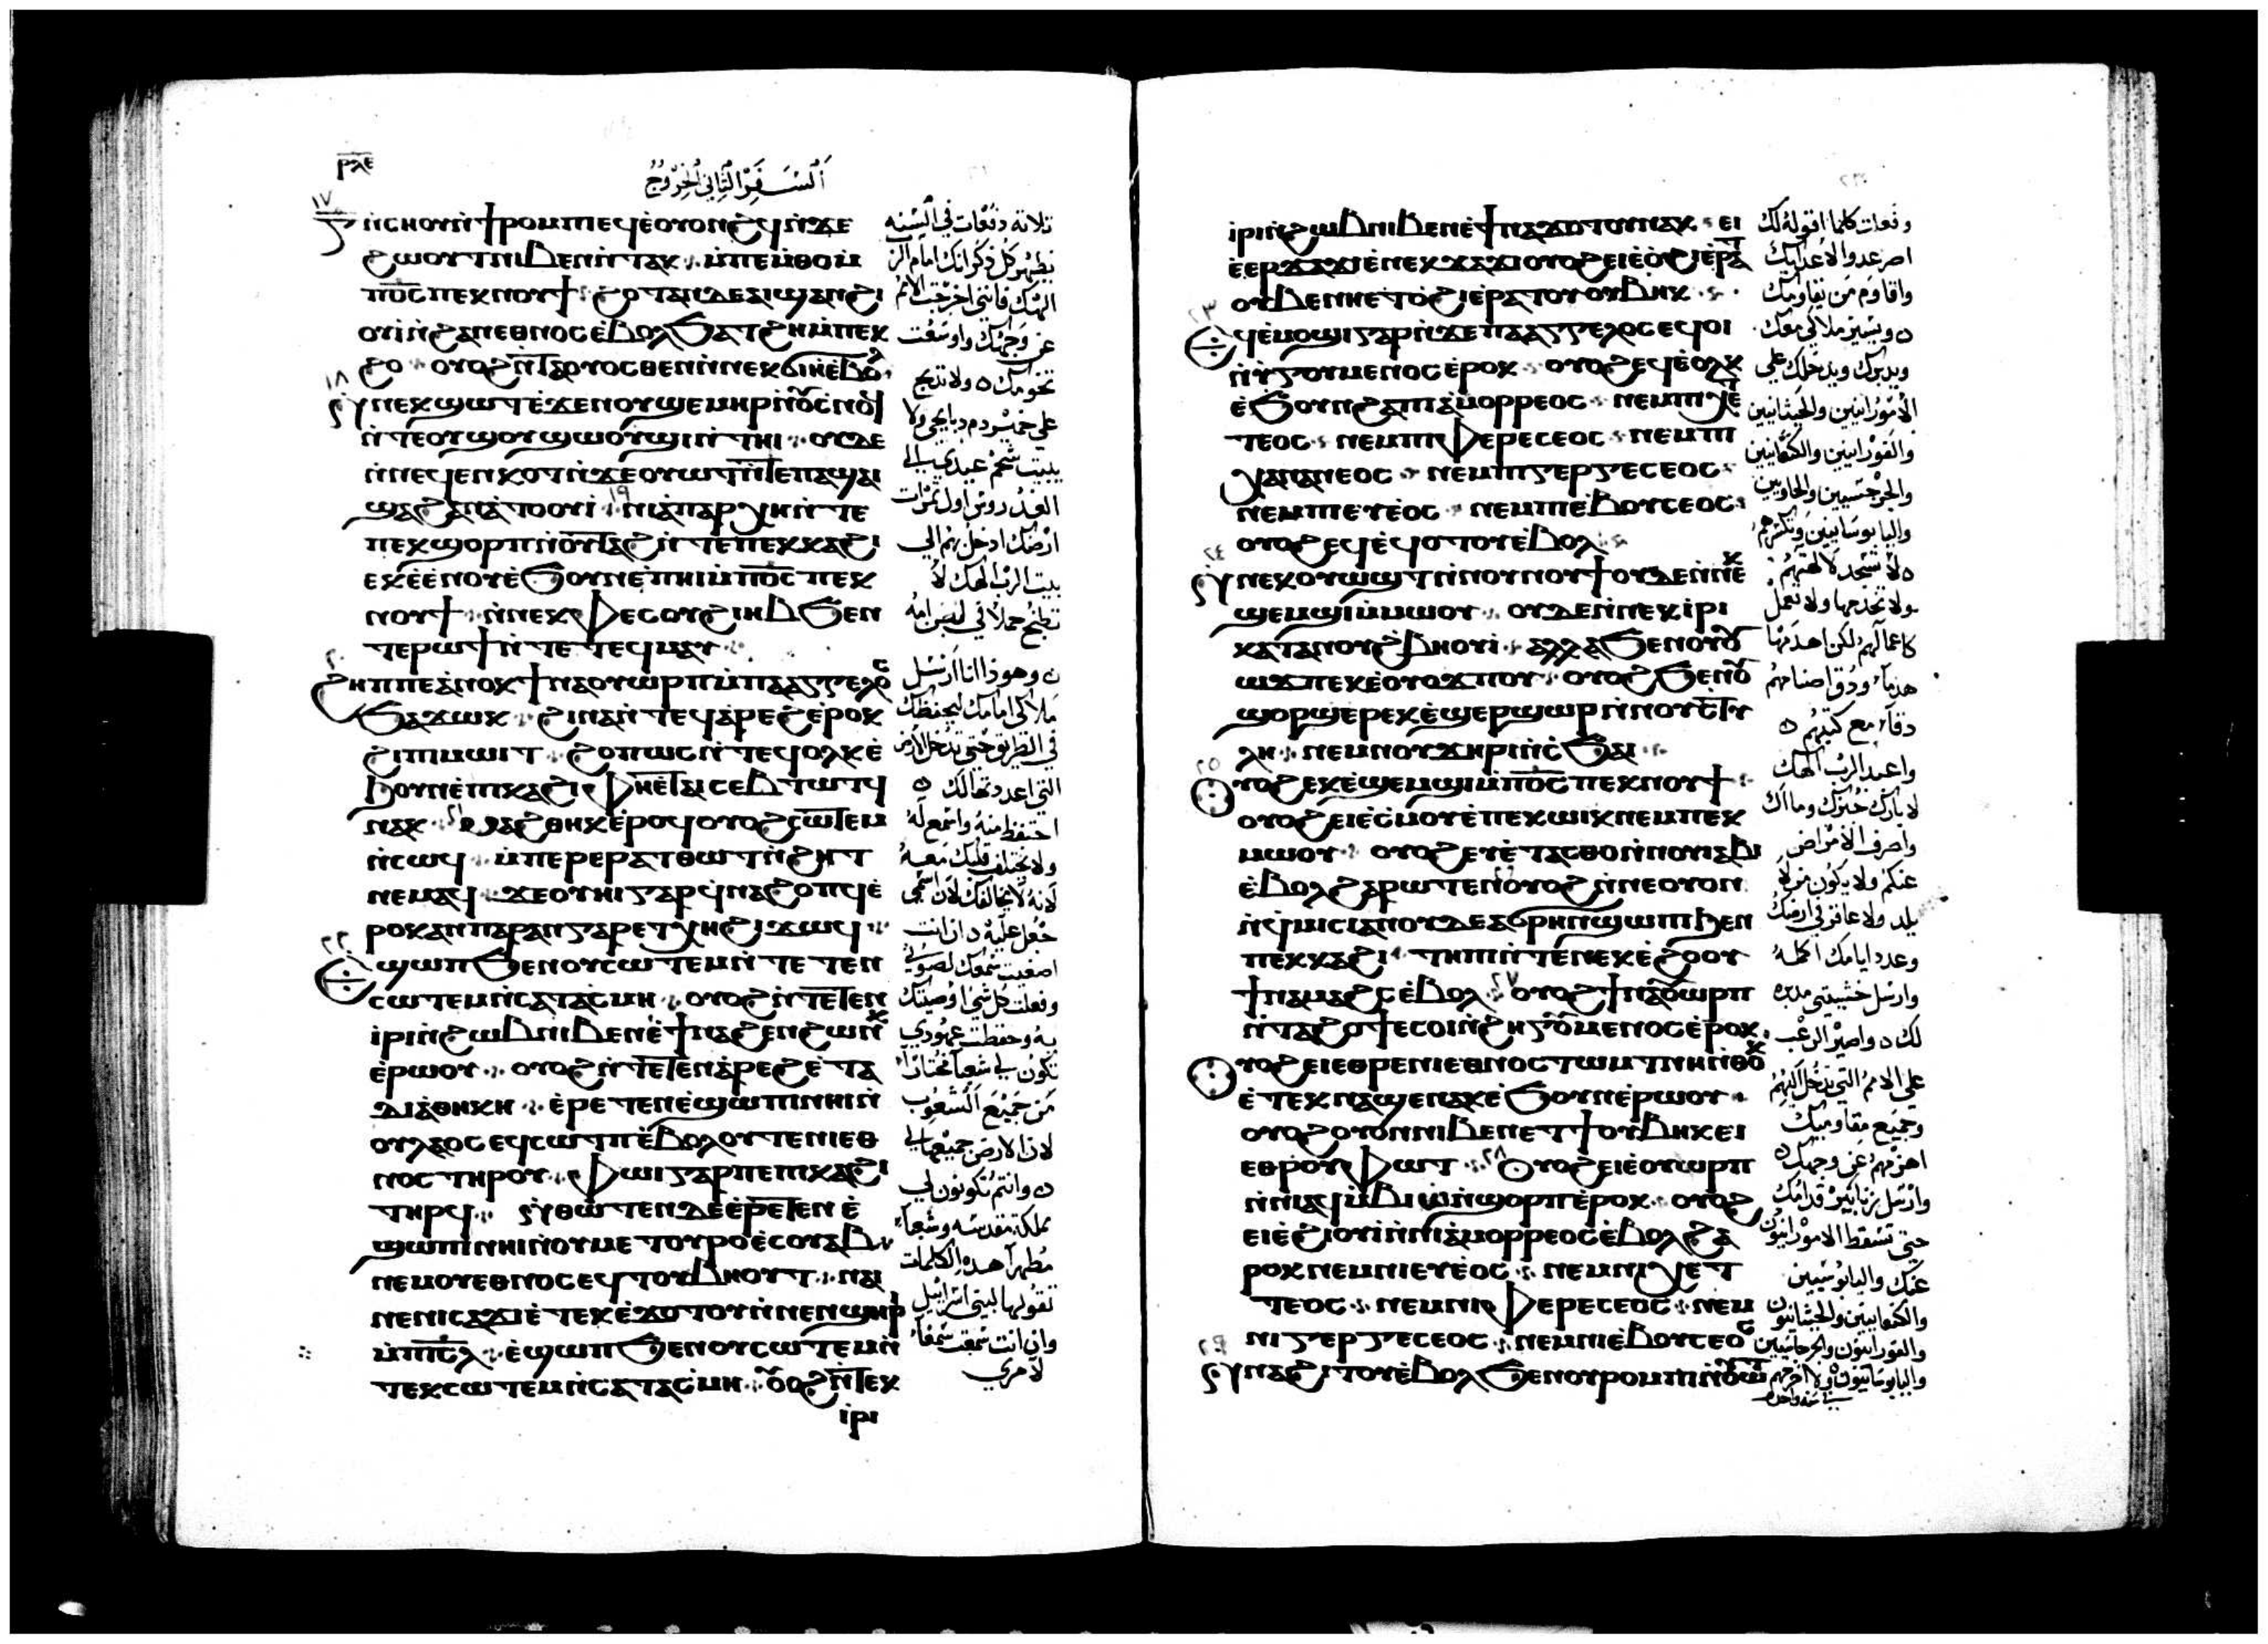 ⲣⲗⲉ
السفر الثاني الخروج
١٧
ⲅ̅ ⲛ̀ⲥⲏⲟⲩ ⲛ̀ϯⲣⲟⲙⲡⲓ ⲉϥⲉ̀ⲟⲩⲟⲛϩϥ ⲛ̀ϫⲉ
ϩⲱⲟⲩⲧ ⲛⲓⲃⲉⲛ ⲛ̀ⲧⲁⲕ ⲙ̀ⲡⲉⲙ̀ⲑⲟ ⲙ̀
ⲡⲟ̅ⲥ̅ ⲡⲉⲕⲛⲟⲩϯ ϩⲟⲧⲁⲛ ⲇⲉ ⲁⲓϣⲁⲛϩⲓ
ⲟⲩⲓ̀ ⲛ̀ϩⲁⲛⲉⲑⲛⲟⲥ ⲉ̀ⲃⲟⲗ ϧⲁⲧϩⲏ ⲙ̀ⲡⲉⲕ
ϩⲟ ⲟⲩⲟϩ ⲛ̀ⲧⲁⲟⲩⲟⲥⲑⲉⲛ ⲛ̀ⲛⲉⲕϭⲓⲏ ⲉ̀ⲃⲟⲗ
١٨
ⲛ̀ⲛⲉⲕϣⲱⲧ ⲉ̀ϫⲉⲛ ⲟⲩϣⲉⲙⲏⲣ ⲛ̀ⲟⲩⲥ̀ⲛⲟϥ
ⲛ̀ⲧⲉ ⲟⲩϣⲟⲩϣⲱⲟⲩϣⲓ ⲛ̀ⲧⲏⲓ ⲟⲩⲇⲉ
ⲛ̀ⲛⲉϥⲉⲛⲕⲟⲧ ⲛ̀ϫⲉ ⲟⲩⲱⲧ ⲛ̀ⲧⲉ ⲡⲁϣⲁⲓ
ϣⲁϩⲁⲛⲁ̀ⲧⲟⲟⲩⲓ̀ ١٩ ⲛⲓⲁ̀ⲡⲁⲣⲭⲏ ⲛ̀ⲧⲉ
ⲡⲉⲕϣⲟⲣⲡ ⲛ̀ⲟⲩⲧⲁϩ ⲛ̀ⲧⲉ ⲡⲉⲕⲕⲁϩⲓ
ⲉⲕⲉ̀ⲉⲛⲟⲩ ⲉ̀ϧⲟⲩⲛ ⲉ̀ⲡⲏⲓ ⲙ̀ⲡⲟ̅ⲥ̅ ⲡⲉⲕ
ⲛⲟⲩϯ ⲛ̀ⲛⲉⲕⲫⲉⲥ ⲟⲩϩⲓⲏⲃ ϧⲉⲛ
ⲧⲉⲣⲱϯ ⲛ̀ⲧⲉ ⲧⲉϥⲙⲁⲩ
٢٠
ϩⲏⲡⲡⲉ ⲁ̀ⲛⲟⲕ ϯⲛⲁⲟⲩⲱⲣⲡ ⲙ̀ⲡⲁⲁⲅⲅⲉⲗⲟⲥ
ϧⲁϫⲱⲕ ϩⲓⲛⲁ ⲛ̀ⲧⲉϥⲁ̀ⲣⲉϩ ⲉ̀ⲣⲟⲕ
ϩⲓ ⲡⲓⲙⲱⲓⲧ ϩⲟⲡⲱⲥ ⲛ̀ⲧⲉϥⲟⲗⲕ ⲉ̀
ϧⲟⲩⲛ ⲉ̀ⲡⲓⲕⲁϩⲓ ⲫⲏⲉ̀ⲧⲁⲓⲥⲉⲃⲧⲱⲧϥ
ⲛⲁⲕ ٢١ ⲙⲁϩⲑⲏⲕ ⲉ̀ⲣⲟϥ ⲟⲩⲟϩ ⲥⲱⲧⲉⲙ
ⲛ̀ⲥⲱϥ ⲙ̀ⲡⲉⲣⲉⲣⲁⲧⲑⲱⲧ ⲛ̀ϩⲏⲧ
ⲛⲉⲙⲁϥ ϫⲉ ⲟⲩⲏⲓ ⲅⲁⲣ ϥ̀ⲛⲁϩⲟⲡϥ ⲉ̀
ⲣⲟⲕ ⲁⲛ ⲡⲁⲣⲁⲛ ⲅⲁⲣ ⲉⲧⲭⲏ ϩⲓϫⲱϥ
٢٢
ⲉϣⲱⲡ ϧⲉⲛ ⲟⲩⲥⲱⲧⲉⲙ ⲛ̀ⲧⲉⲧⲉⲛ
ⲥⲱⲧⲉⲙ ⲛ̀ⲥⲁ ⲧⲁⲥ̀ⲙⲏ ⲟⲩⲟϩ ⲛ̀ⲧⲉⲧⲉⲛ
ⲓ̀ⲣⲓ ⲛ̀ϩⲱⲃ ⲛⲓⲃⲉⲛ ⲉ̀ϯⲛⲁϩⲉⲛϩⲱⲛⲕ
ⲉ̀ⲣⲱⲟⲩ ⲟⲩⲟϩ ⲛ̀ⲧⲉⲧⲉⲛⲁ̀ⲣⲉϩ ⲉ̀ⲧⲁ
ⲇⲓⲁ̀ⲑⲏⲕⲏ ⲉ̀ⲣⲉⲧⲉⲛⲉ̀ϣⲱⲡⲓ ⲛⲏⲓ ⲛ̀
ⲟⲩⲗⲁⲟⲥ ⲉϥⲥⲱⲧⲡ ⲉ̀ⲃⲟⲗ ⲟⲩⲧⲉ ⲛⲓⲉⲑ
ⲛⲟⲥ ⲧⲏⲣⲟⲩ ⲫⲱⲓ ⲅⲁⲣ ⲡⲉ ⲡⲓⲕⲁϩⲓ
ⲧⲏⲣϥ ⲛ̀ⲑⲱⲧⲉⲛ ⲇⲉ ⲉ̀ⲣⲉⲧⲉⲛⲉ̀
ϣⲱⲡⲓ ⲛⲏⲓ ⲛ̀ⲟⲩⲙⲉⲧⲟⲩⲣⲟ ⲉ̀ⲥⲟⲩⲁⲃ
ⲛⲉⲙ ⲟⲩⲉⲑⲛⲟⲥ ⲉϥⲧⲟⲩⲃⲏⲟⲩⲧ ⲛⲁⲓ
ⲛⲉ ⲛⲓⲥⲁϫⲓ ⲉ̀ⲧⲉⲕⲉ̀ϫⲟⲧⲟⲩ ⲛ̀ⲛⲉⲛϣⲏⲣⲓ
ⲙ̀ⲡⲓⲥ̅ⲗ̅ ⲉ̀ϣⲱⲡ ϧⲉⲛ ⲟⲩⲥⲱⲧⲉⲙ ⲛ̀
ⲧⲉⲕⲥⲱⲧⲉⲙ ⲛ̀ⲥⲁ ⲧⲁⲥ̀ⲙⲏ ⲟⲩⲟϩ ⲛ̀ⲧⲉⲕ
ⲓ̀ⲣⲓ
تلاتة دفعات في السنه
يظهر كل ذكرانك امام الرب
الهك فانني اخرجت الامم
عن وجهك واوسعت
تخومك ولا تذبح
على خمير دم ذبايحي ولا
يبيت شحم عيدي الى
الغد روس اول ثمرات
ارضك ادخل بهم الى
بيت الرب الهك لا
تطبخ حملا في لبن امه
وهوذا انا ارسل
ملاكي امامك ليحفظك
في الطريق حتى تدخل الارض
التي اعددتها لك
احتفظ منه واسمع له
ولا يختلف قلبك معه
لانه لا يخالفك لان اسمي
جعل عليه ان انت
اصغيت بسمعك لصوتي
وفعلت كل شي اوصيتك
به وحفظت عهودي
تكون لي شعبا مختارا
من جميع الشعوب
لان الارض جميعها لي
وانتم تكونون لي
مملكة مقدسه وشعبا
مطهرا هذه الكلمات
تقولها لبني اسرائيل
وان انت سمعت سمعا
لامري
ⲓ̀ⲣⲓ ⲛ̀ϩⲱⲃ ⲛⲓⲃⲉⲛ ⲉ̀ϯⲛⲁϫⲟⲧⲟⲩ ⲛⲁⲕ ⲉⲓ
ⲉ̀ⲉⲣϫⲁϫⲓ ⲉ̀ⲛⲉⲕϫⲁϫⲓ ⲟⲩⲟϩ ⲉⲓⲉ̀ⲟ̀ϩⲓ ⲉ̀ⲣⲁⲧ
ⲟⲩⲃⲉ ⲛⲏⲉⲧⲟ̀ϩⲓ ⲉ̀ⲣⲁⲧⲟⲩ ⲟⲩⲃⲏⲕ
٢٣
ⲉϥⲉ̀ⲙⲟϣⲓ ⲅⲁⲣ ⲛ̀ϫⲉ ⲡⲁⲁⲅⲅⲉⲗⲟⲥ ⲉϥⲟⲓ
ⲛ̀ϩⲩⲅⲟⲩⲙⲉⲛⲟⲥ ⲉ̀ⲣⲟⲕ ⲟⲩⲟϩ ⲉϥⲉ̀ⲟⲗⲕ
ⲉ̀ϧⲟⲩⲛ ϩⲁ ⲡⲓⲁ̀ⲙⲟⲣⲣⲉⲟⲥ ⲛⲉⲙ ⲡⲓⲭⲉ
ⲧⲉⲟⲥ ⲛⲉⲙ ⲡⲓⲫⲉⲣⲉⲥⲉⲟⲥ ⲛⲉⲙ ⲡⲓ
ⲭⲁⲛⲁⲛⲉⲟⲥ ⲛⲉⲙ ⲡⲓⲅⲉⲣⲅⲉⲥⲉⲟⲥ
ⲛⲉⲙ ⲡⲓⲉⲩⲉ̀ⲟⲥ ⲛⲉⲙ ⲡⲓⲉ̀ⲃⲟⲩⲥⲉⲟⲥ
ⲟⲩⲟϩ ⲉϥⲉ̀ϥⲟⲧⲟⲩ ⲉ̀ⲃⲟⲗ
٢٤
ⲛ̀ⲛⲉⲕⲟⲩⲱϣⲧ ⲛ̀ⲛⲟⲩⲛⲟⲩϯ ⲟⲩⲇⲉ ⲛ̀ⲛⲉⲕ
ϣⲉⲙϣⲓ ⲙ̀ⲙⲱⲟⲩ ⲟⲩⲇⲉ ⲛ̀ⲛⲉⲕⲓ̀ⲣⲓ
ⲕⲁⲧⲁ ⲛⲟⲩϩⲃⲏⲟⲩⲓ̀ ⲁⲗⲗⲁ ϧⲉⲛ ⲟⲩⲟⲩ
ⲱϫⲡ ⲉⲕⲉ̀ⲟⲩⲟϫⲡⲟⲩ ⲟⲩⲟϩ ϧⲉⲛ ⲟⲩ
ϣⲟⲣϣⲉⲣ ⲉⲕⲉ̀ϣⲉⲣϣⲱⲣ ⲛ̀ⲛⲟⲩⲥⲧⲩ
ⲗⲏ ⲛⲉⲙ ⲛⲟⲩϫⲏⲣⲓ ⲛ̀ⲥ̀ϧⲁⲓ
٢٥
ⲟⲩⲟϩ ⲉⲕⲉ̀ϣⲉⲙϣⲓ ⲙ̀ⲡⲟ̅ⲥ̅ ⲡⲉⲕⲛⲟⲩϯ
ⲟⲩⲟϩ ⲉⲓⲉ̀ⲥ̀ⲙⲟⲩ ⲉ̀ⲡⲉⲕⲱⲓⲕ ⲛⲉⲙ ⲡⲉⲕ
ⲙⲱⲟⲩ ⲟⲩⲟϩ ⲉⲩⲉ̀ⲧⲁⲥⲑⲟ ⲛ̀ⲛⲟⲩⲓⲁⲃⲓ
ⲉ̀ⲃⲟⲗ ϩⲁⲣⲱⲧⲉⲛ ⲟⲩⲟϩ ⲛ̀ⲛⲉⲟⲩⲟⲛ
ⲛ̀ϥ̀ⲙⲓⲥⲓ ⲁⲛ ⲟⲩⲇⲉ ⲁϭⲣⲏⲛ ϣⲱⲡⲓ ϧⲉⲛ
ⲡⲉⲕⲕⲁϩⲓ ⲧⲏⲡⲓ ⲛ̀ⲧⲉ ⲛⲉⲕⲉ̀ϩⲟⲟⲩ
ϯⲛⲁⲙⲁϩⲥ ⲉ̀ⲃⲟⲗ ٢٧ ⲟⲩⲟϩ ϯⲛⲁⲟⲩⲱⲣⲡ
ⲛ̀ⲧⲁϩⲟϯ ⲉⲥⲟⲓ ⲛ̀ϩⲏⲅⲟⲩⲙⲉⲛⲟⲥ ⲉ̀ⲣⲟⲕ
ⲟⲩⲟϩ ⲉⲓⲉⲑⲣⲉ ⲛⲓⲉⲑⲛⲟⲥ ⲧⲱⲙⲧ ⲛⲏ ⲛ̀ⲑⲟⲕ
ⲉ̀ⲧⲉⲕⲛⲁϣⲉⲛⲁⲕ ⲉ̀ϧⲟⲩⲛ ⲉ̀ⲣⲱⲟⲩ
ⲟⲩⲟϩ ⲟⲩⲟⲛ ⲛⲓⲃⲉⲛ ⲉⲧϯ ⲟⲩⲃⲏⲕ ⲉⲓ
ⲉⲑⲣⲟⲩⲫⲱⲧ ٢٨ ⲟⲩⲟϩ ⲉⲓⲉⲟⲩⲱⲣⲡ
ⲛ̀ⲛⲓⲁϥⲙⲃⲓⲱⲛ ⲛ̀ϣⲟⲣⲡ ⲉ̀ⲣⲟⲕ ⲟⲩⲟϩ
ⲉⲓⲉ̀ϩⲓⲟⲩⲓ̀ ⲛ̀ⲛⲓⲁ̀ⲙⲟⲣⲣⲉⲟⲥ ⲉ̀ⲃⲟⲗ ϩⲁ
ⲣⲟⲕ ⲛⲉⲙ ⲛⲓⲉⲩⲉ̀ⲟⲥ ⲛⲉⲙ ⲛⲓⲭⲉⲧ
ⲧⲉⲟⲥ ⲛⲉⲙ ⲛⲓⲫⲉⲣⲉⲥⲉⲟⲥ ⲛⲉⲙ
ⲛⲓⲅⲉⲣⲅⲉⲥⲉⲟⲥ ⲛⲉⲙ ⲛⲓⲉ̀ⲃⲟⲩⲥⲉⲟⲥ
٢٩
ⲛ̀ⲛⲁϩⲓⲧⲟⲩ ⲉ̀ⲃⲟⲗ ϧⲉⲛ ⲟⲩⲣⲟⲙⲡⲓ ⲛ̀ⲟⲩⲱⲧ
وفعلت كلما اقوله لك
اصر عدوا لاعدايك
واقاوم من يقاومك
ويسير ملاكي معك
ويدبرك ويدخلك على
الامورانيين والحيثانيين
والفورانيين والكنعانيين
والجرجسيين والحاويين
واليابوسانيين وتكسرهم
لا تسجد لالهتهم
ولا تخدمها ولا تعمل
كاعمالهم لكن اهدمها
هدما ودق اصنامهم
دقا مع كتبهم
واعبد الرب الهك
لابارك خبزك وماك
واصرف الامراض
عنكم ولا يكون من لا
يلد ولا عاقر في ارضك
وعدد ايامك اكمله
وارسل خشيتي مدبره
لك واصير الرعب
على الامم التي تدخل اليهم
وجميع مقاوميك
اهزمهم عن وجهك
وارسل زنابير قدامك
حتى تسقط الامورانيون
عنك واليابوسيين
والكنعانيين والحيثانيون
والفورانيون والجرجسيين
واليابوسانيون ولا اخرجهم
في سنه واحده